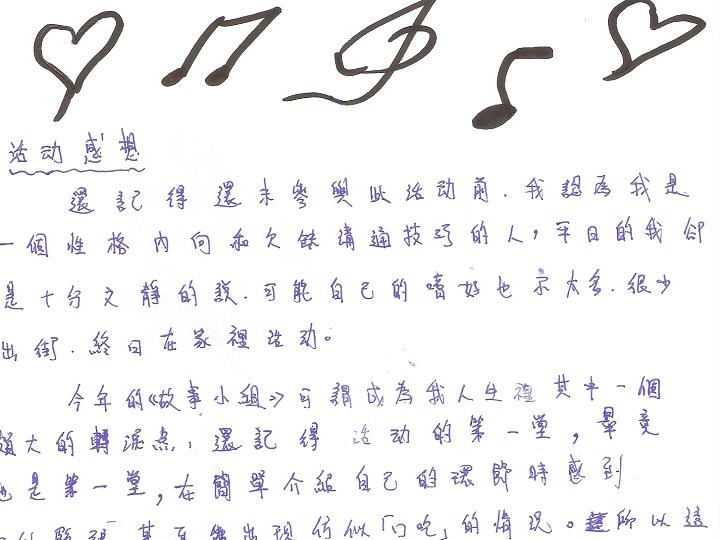 活动感想
還記得還未參與此活动前.我認為我是
一個性格內向和欠缺溝通技巧的人，平日的我卻
是十分文靜的說.可能自己的嗜好也不太多.很少
出街.終日在家裡活动。
今年的《故事小組》可謂成為我人生裡其中一個
頗大的轉淚点，還記得活动的第一堂，畢竟
也是第一堂，在簡單介紹自己的環節時感到
其至出現仿似「口吃」的情況。所以這